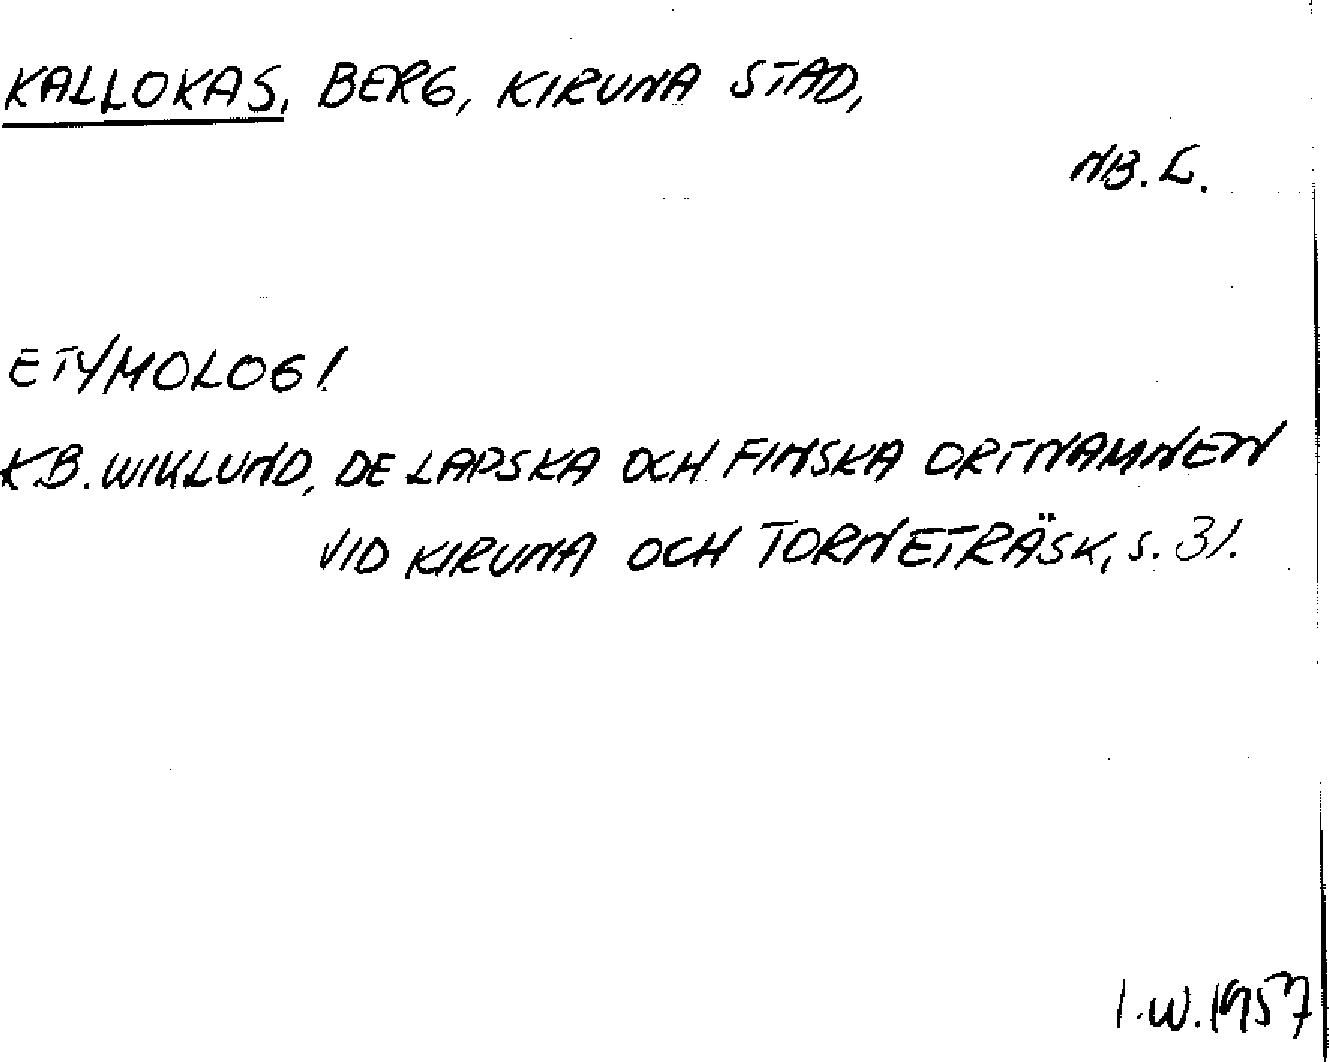 KALLOKAS, BERG, KIRUNA STAD,
NB. L.
ETYMOLOGI
K.B. WIKLUND, DE LAPSKA OCH FINSKA ORTNAMNEN
VID KIRUNA OCH TORNETRÄSK, s. 31.
I.W. 1957